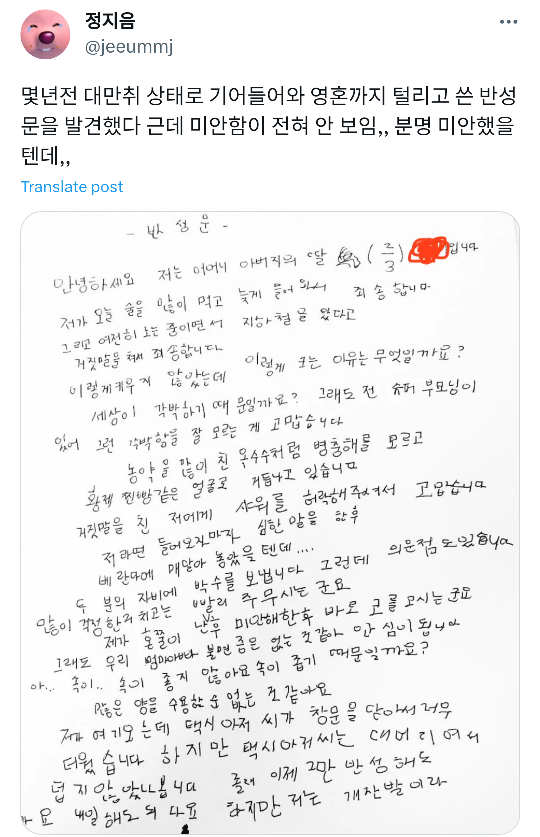 정지음
@jeeummj
몇년전 대만취 상태로 기어들어와 영혼까지 털리고 쓴 반성
문을 발견했다 근데 미안함이 전혀 안 보임,, 분명 미안했을
텐데,,
Translate post
- 반성문 -
안녕하세요 저는 어머니 아버지의 딸 (2/3) 입니다
제가 오늘 술을 많이 먹고 늦게 들어와서 죄송합니다
그리고 여전히 노는 중이면서 지하철을 탔다고
거짓말을 쳐서 죄송합니다
이렇게키우지 않았는데 이렇게 크는 이유는 무엇일까요?
세상이 각박하기 때문일까요? 그래도 전 슈퍼 부모님이
있어 그런 각박함을 잘 모르는 게 고맙습니다
농약을 많이 친 옥수수처럼 병충해를 모르고
황제 찐빵같은 얼굴로 거듭나고 있습니다
거짓말을 친 저에게 샤워를 허락해주셔서 고맙습니다
저라면 들어오자마자 심한 말을 한후
베란다에 매달아 놓았을텐데....
두 분의 자비에 박수를 보냅니다 그런데 의문점도있습니다
많이 걱정한것 치고는 빨리 주무시는군요
제가 혼쭐이 난후 미안해한후 바로 코를 고시는군요
그래도 우리 엄마아빠 불면증은 없는 것같아 안심이 됩니다
아... 속이.. 속이 좋지 않아요 속이 좁기 때문일까요?
많은 양을 수용할 순 없는 것 같아요
제가 여기오는데 택시아저씨가 창문을 닫아서 너무
더웠습니다 하지만 택시아저씨는 대머리여서
덥지않았나봅니다 졸려 이제 그만 반성해도
요 내일 해도 되나요 하지만 저는 개잔발이라